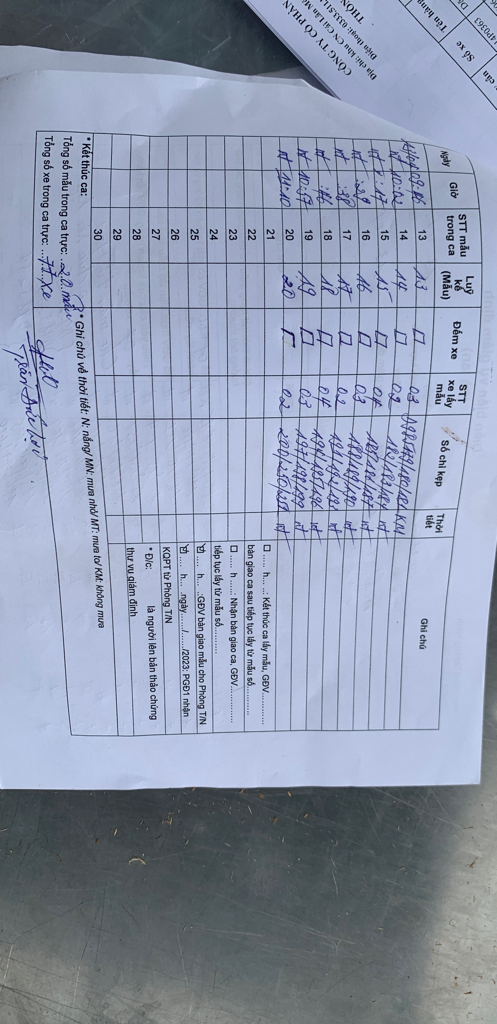 CÔNG TY CỔ PHẦN
Địa chỉ: khu CN Cái Lân
Điện thoại: 0333.51
THÔN
Tên hàng
Số xe
470363
Ngày Giờ STT mẫu trong ca Luỹ kế (Mẫu) Đếm xe STT xe lấy mẫu Số chì kẹp Thời tiết Ghi chú
13 13 □ 03 KM
nt 10:02 14 14 □ 02 182/183/184 nt
nt 15 15 □ 04 185/186/187 nt
nt 16 16 □ 03 188/189/190 nt
nt 17 17 □ 02 191/192/193 nt
nt 18 18 □ 04 194/195/196 nt
nt 10:57 19 19 □ 03 197/198/199 nt
nt 11:10 20 20 02 nt
21 □ ..... h... ...: Kết thúc ca lấy mẫu, GĐV............
22 bàn giao ca sau tiếp tục lấy từ mẫu số..............
23 □ ..... h .....: Nhận bàn giao ca, GĐV ..............
24 tiếp tục lấy từ mẫu số.............
25 ..... h... ..:GĐV bàn giao mẫu cho Phòng T/N
26 ..... h... ..ngày....../....../2023: PGĐ1 nhận
27 KQPT từ Phòng T/N
28 * Đ/c: là người lên bản thảo chứng
29 thư vụ giám định
30
* Kết thúc ca:
Tổng số mẫu trong ca trực: ..20.. mẫu * Ghi chú về thời tiết: N: nắng/ MN: mưa nhỏ/ MT: mưa to/ KM: không mưa
Tổng số xe trong ca trực: ..71..xe